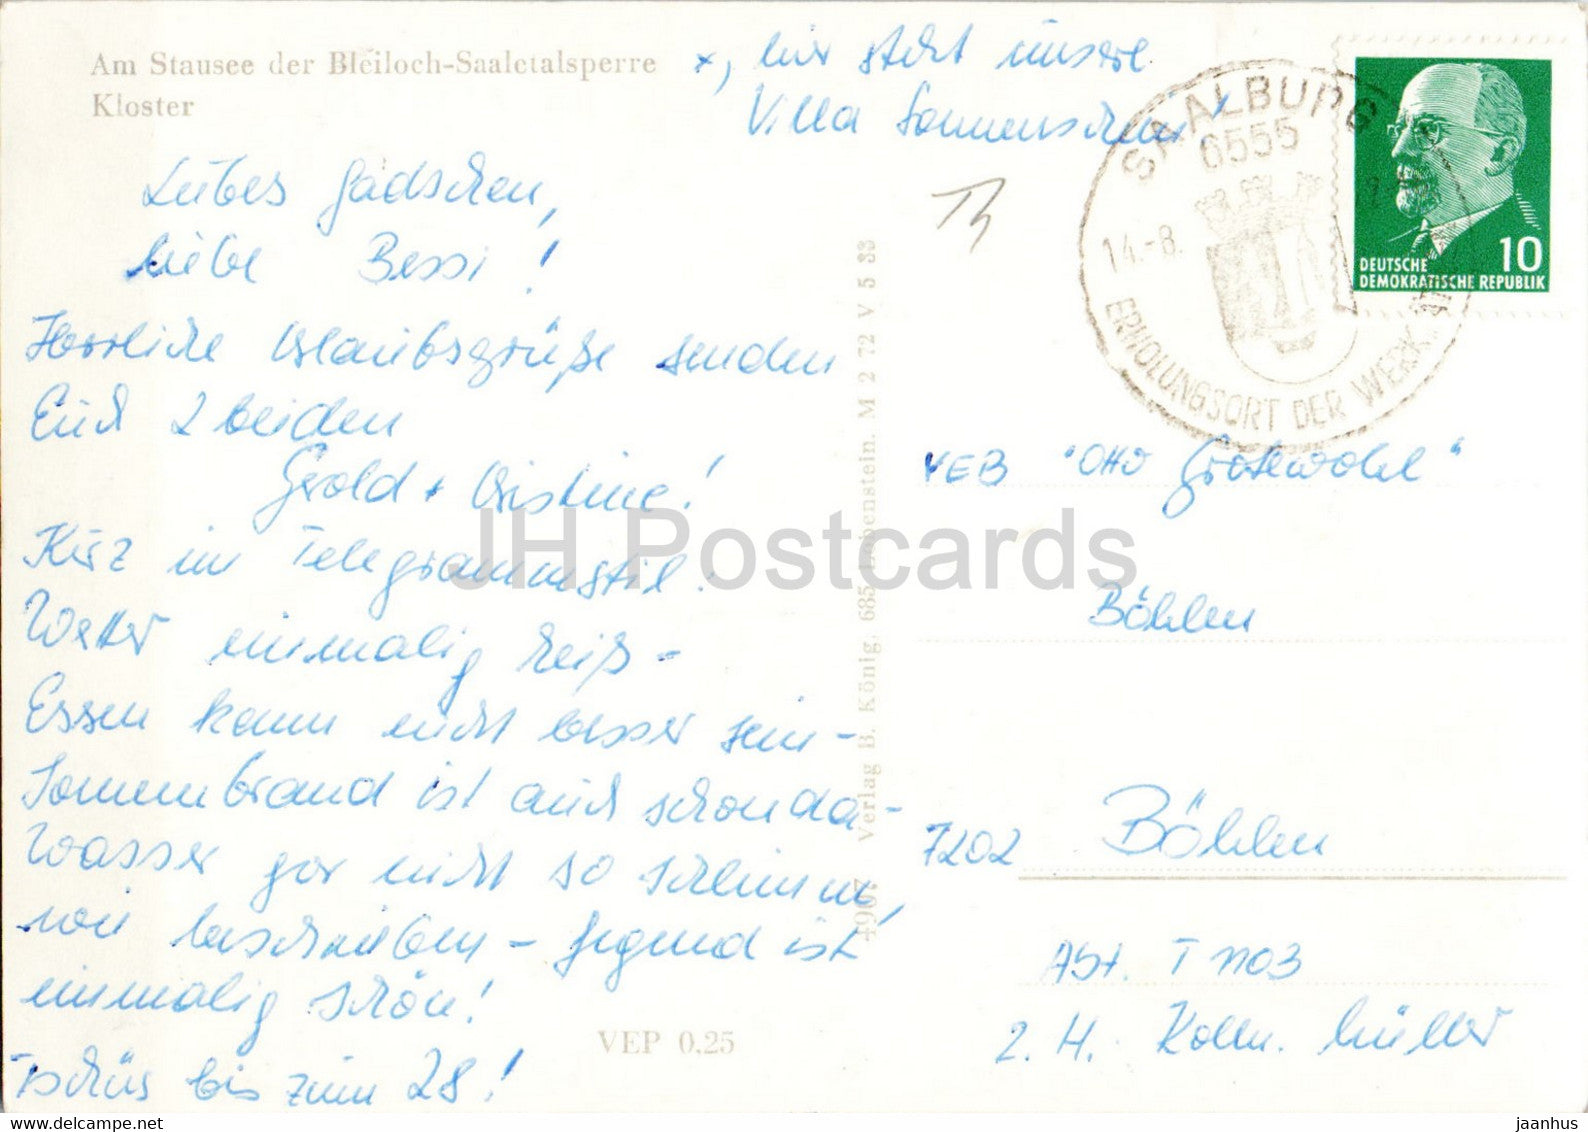 Am Stausee der Bleiloch-Saaletalsperre
Kloster
x, hier steht unsere
Villa Sonnenschein
Liebes Gädschen,
liebe Bessi!
Herrliche Urlaubsgrüße senden
Euch 2 beiden
Gerold + Christine!
Kurz im Telegrammstil:
Wetter einmalig heiß -
Essen kann nicht besser sein -
Sonnenbrand ist auch schon da -
Wasser gar nicht so schlimm,
wie beschrieben - Gegend ist
einmalig schön!
Tschüs bis zum 28!
VEP 0.25
4907 Verlag B. König, 685 Lobenstein. M 2 72 V 5 33
SAALBURG
6555
14.-8.
ERHOLUNGSORT DER WERK
10
DEUTSCHE
DEMOKRATISCHE REPUBLIK
VEB "Otto Grotewohl"
Böhlen
7202 Böhlen
Abt. T 1103
z. H. Kolln. Müller
JH Postcards
www.delcampe.net
jaanhus